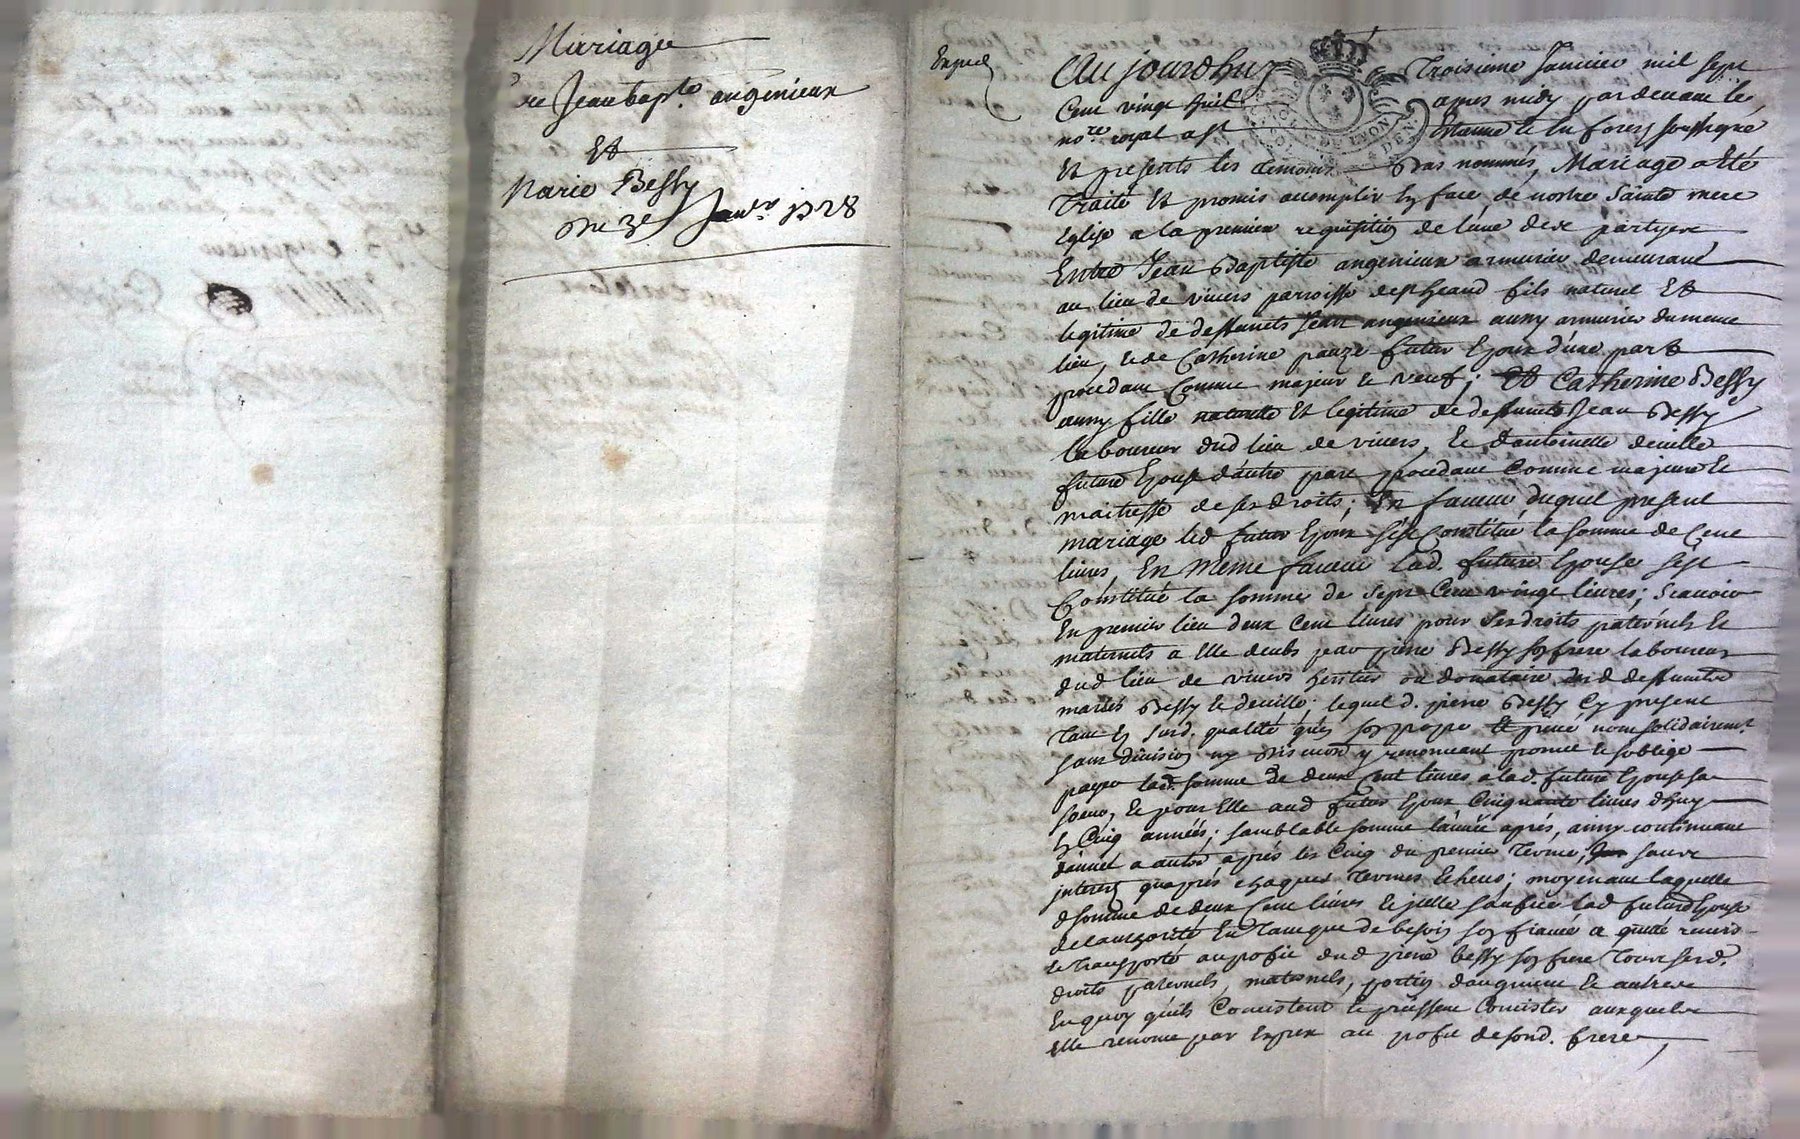 Mariage
de Jean bapte. angenieux
Et
Marie Bessy
Du 3e Janvr. 1728
Expedé
Aujourdhuy Troisieme Janvier mil sept
Cent vingt huit apres midy pardevant le
nore. royal a St Estienne de en forez soussigné
Et presents les temoins bas nommés, Mariage a Eté
Traité Et promis accomplir En face de nostre Sainte mere
Eglise a la premiere requisition de lune des partyes
Entre Jean Baptiste angenieux armurier demeurant
au lieu de vivers parroisse de St heand fils naturel Et
legitime de deffuncts Jean angenieux aussy armurier du meme
lieu, et de Catherine pauze futur Epoux d'une part
procedant Comme majeur et veuf; Et Catherine Bessy
aussy fille naturelle Et legitime de deffuncts Jean Bessy
laboureur dud lieu de vivers, et d'antoinette deville
future Epouse d'autre part procedant Comme majeure et
maitresse de ses droits; En faveur duquel present
mariage led futur Epoux s'est Constitué la somme de Cent
livres, En Meme faveur lad. future Epouse s'est
Constitué la somme de Sept Cent vingt livres; Scavoir
En premier lieu deux Cent livres pour ses droits paternels et
maternels a Elle deubs par pierre Bessy son frere laboureur
dud lieu de vivers heritier ou donataire desd deffuncts
mariés Bessy et deville; lequel d. pierre Bessy Cy present
tant En sesd. qualité qu'en son propre et privé nom solidairemt.
sans division ny discution y renonceant promet et s'oblige
payer lad. somme de deux Cent livres a lad. future Epouse sa
soeur, et pour Elle aud futur Epoux Cinquante livres dhuy
En Cinq années; semblable somme l'année après, ainsy continuant
d'année a autre après les Cinq du premier Terme, sans
interetz qu'aprés chaques Termes Echeus; moyenant laquelle
d somme de deux Cent livres et jcelle sauf lad future Epouse
de l'authorité En Tant que de besoin son fiancé a quitté remis
et transporté au profit dud pierre bessy son frere Tous sesd.
droits paternels, maternels, portion daugment et autres
En quoy qu'ils Concistent et puissent Concister auxquels
elle renonce par Exprex au profit de sond. frere,